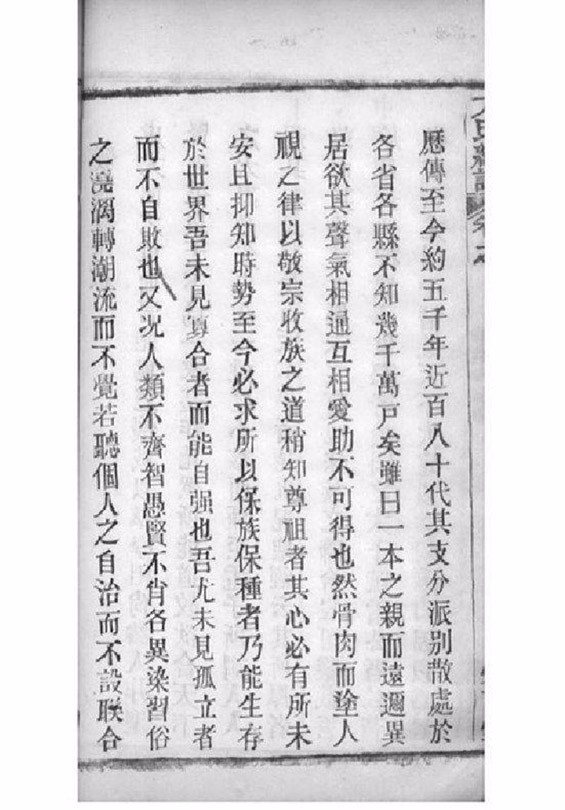 歷傳至今約五千年近百八十代其支分派別散處於
各省各縣不知幾千萬戸矣雖曰一本之親而遠邇異
居欲其聲氣相通互相愛助不可得也然骨肉而塗人
視之律以敬宗收族之道稍知尊祖者其心必有所未
安且抑知時勢至今必求所以保族保種者乃能生存
於世界吾未見寡合者而能自强也吾尤未見孤立者
而不自敗也又况人類不齊智愚賢不肖各異染習俗
之澆漓轉潮流而不覺若聽個人之自治而不設联合